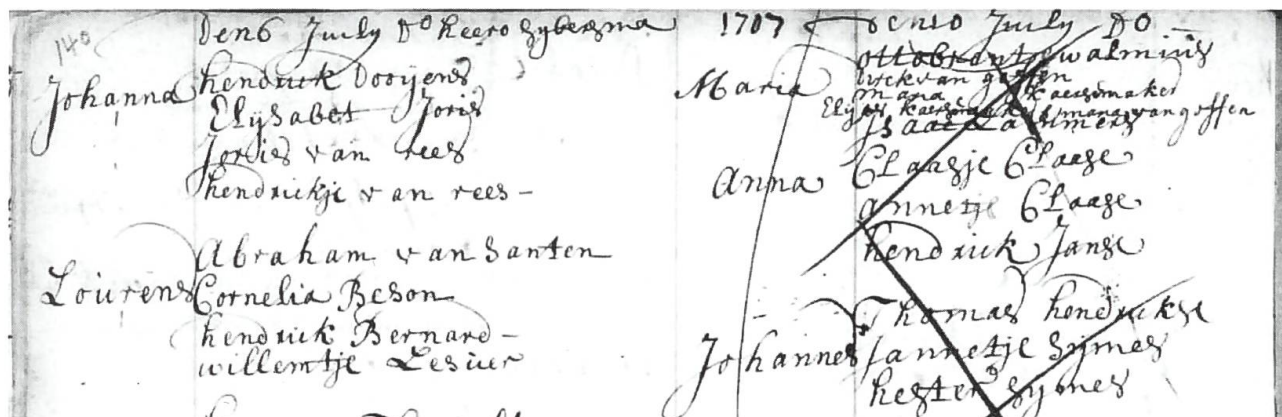 140
Den 6 July Do heero sybersma
Johanna
hendrick Dooijens
Elijsabet Joris
Jories van rees
hendrickje van rees -
Lourens
Abraham van santen
Cornelia Beson
hendrick Bernard -
willemtje Lesuer
1707
Den 10 July Do
ottobrant walmius
Maria
Dirck van goffen
maria kaersmaker
maria van goffen
Isaac Lammers
Anna
Claasje Claase
annetje Claase
hendrick Janse
Johannes
Thomas hendrikse
Jannetje sijmes
hester sijmes